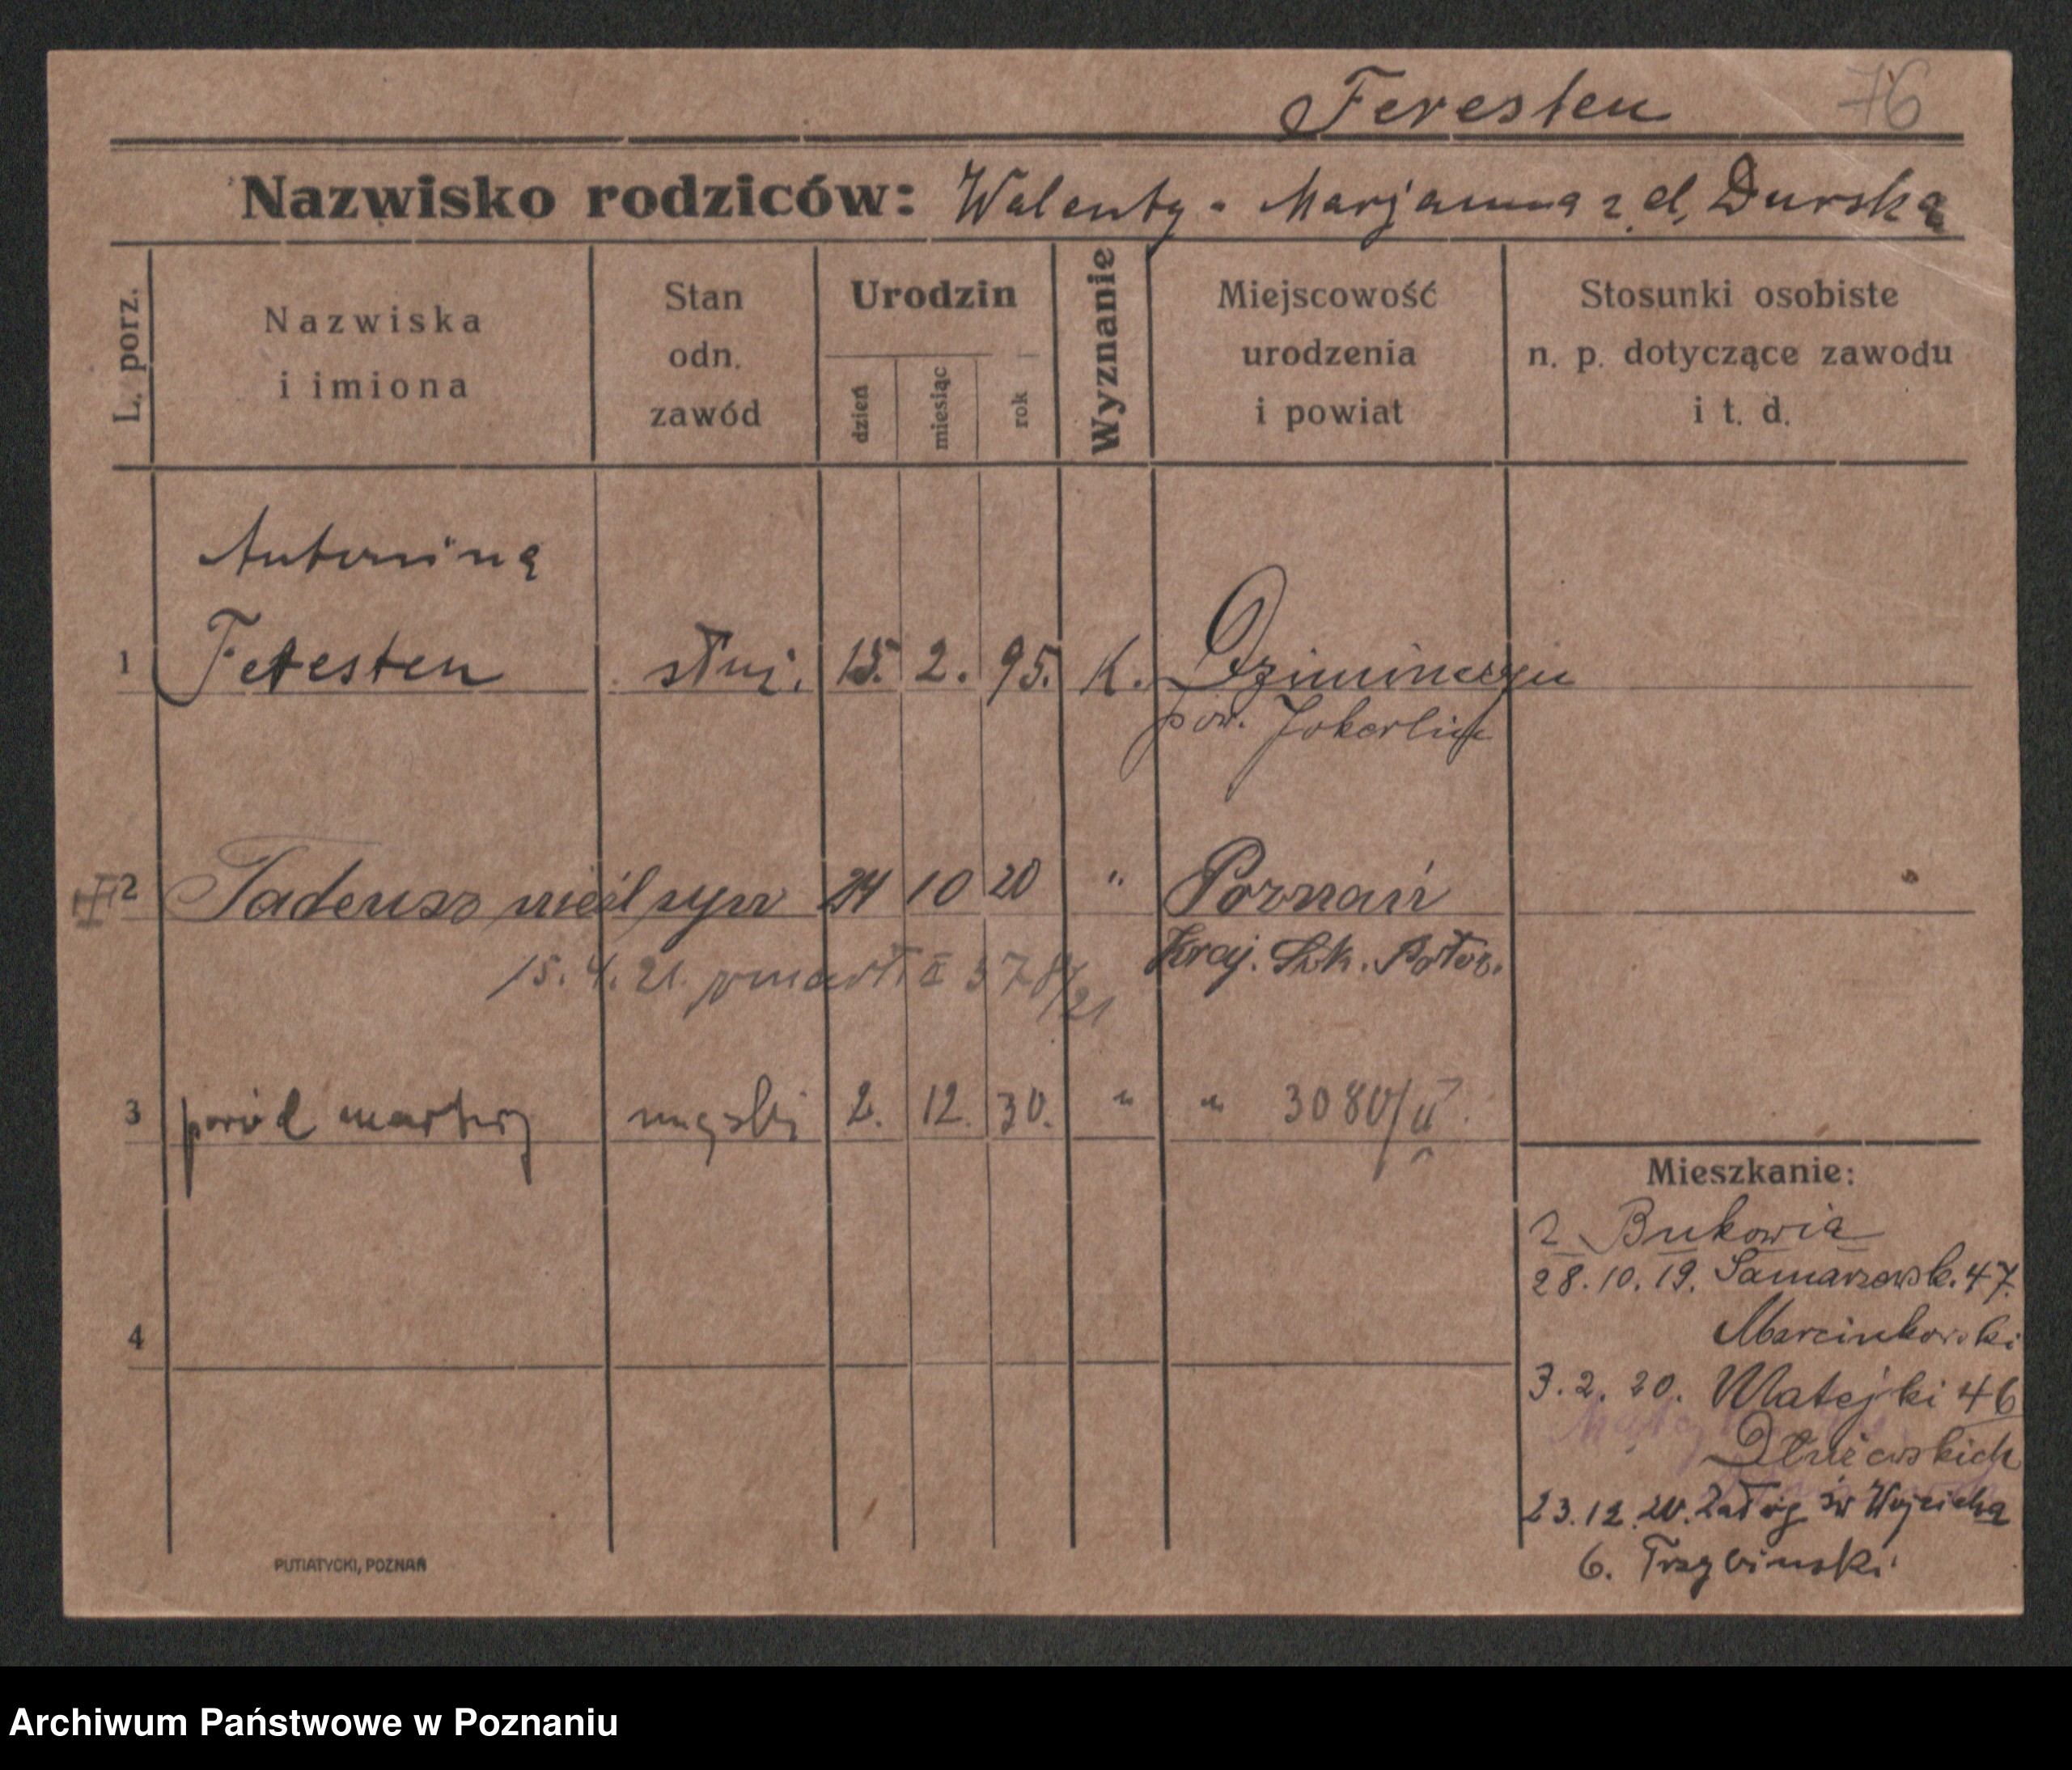 Feresten 76
Nazwisko rodziców: Walenty - Marjanna z d. Durska
L. porz.
Nazwiska
i imiona
Stan
odn.
zawód
Urodzin
dzień
miesiąc
rok
Wyznanie
Miejscowość
urodzenia
i powiat
Stosunki osobiste
n. p. dotyczące zawodu
i t. d.
Antonina
1 Feresten służ. 15. 2. 95. K.
pow.
2 Tadeusz nieśl syn 24 10 20 " Poznań
Kraj. Szk. Położ.
15. 4. 21. zmarł II 378/21
3 poród martwy męski 2. 12. 30. " " 3080/II
Mieszkanie:
z Bukowia
28. 10. 19. Samarzewsk. 47.
Marcinkowski
4
3. 2. 20. Matejki 46
23. 12. 20. św Wojciecha
6. Trzybinski
PUTIATYCKI, POZNAŃ
Archiwum Państwowe w Poznaniu